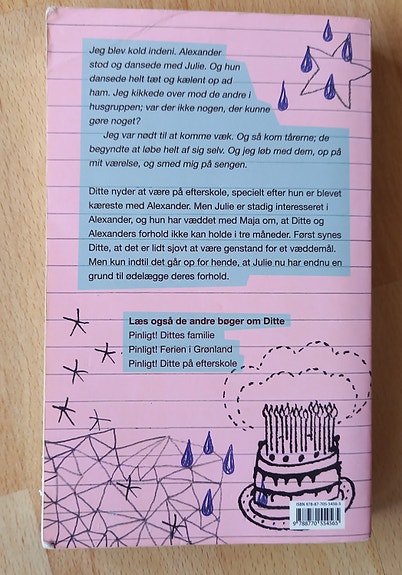 Jeg blev kold indeni. Alexander
stod og dansede med Julie. Og hun
dansede helt tæt og kælent op ad
ham. Jeg kikkede over mod de andre i
husgruppen; var der ikke nogen, der kunne
gøre noget?
Jeg var nødt til at komme væk. Og så kom tårerne; de
begyndte at løbe helt af sig selv. Og jeg løb med dem, op på
mit værelse, og smed mig på sengen.
Ditte nyder at være på efterskole, specielt efter hun er blevet
kæreste med Alexander. Men Julie er stadig interesseret i
Alexander, og hun har væddet med Maja om, at Ditte og
Alexanders forhold ikke kan holde i tre måneder. Først synes
Ditte, at det er lidt sjovt at være genstand for et væddemål.
Men kun indtil det går op for hende, at Julie nu har endnu en
grund til ødelægge deres forhold.
Læs også de andre bøger om Ditte
Pinligt! Dittes familie
Pinligt! Ferien i Grønland
Pinligt! Ditte på efterskole
ISBN 978-87-705-5456-5
9 788770 554565